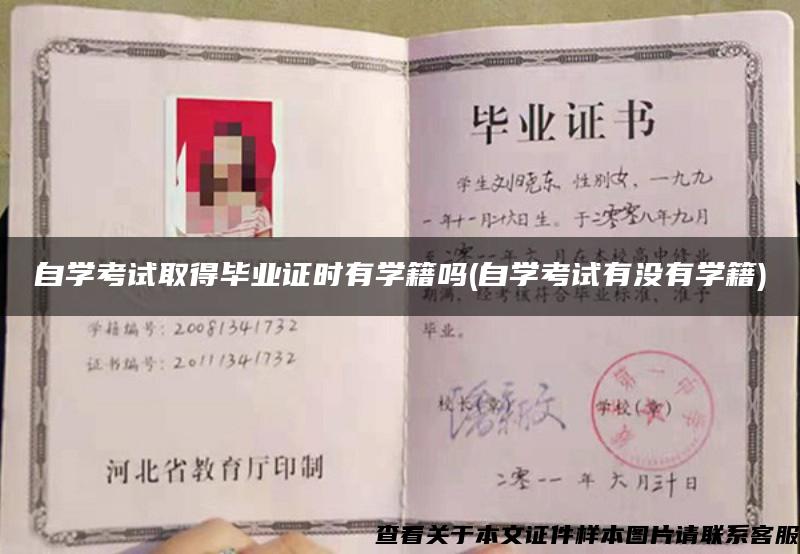 毕业证书
学生刘晓东 性别女，一九九
一年十一月廿六日生。于二零零八年九月
至二零一一年六月在本校高中修业
自学考试取得毕业证时有学籍吗(自学考试有没有学籍)
期满，经考核符合毕业标准，准予
毕业。
学籍编号：20081341732
证书编号：20111341732
校长(章)
学校(章)
第一中学
二零一一年六月三十日
河北省教育厅印制
查看关于本文证件样本图片请联系客服